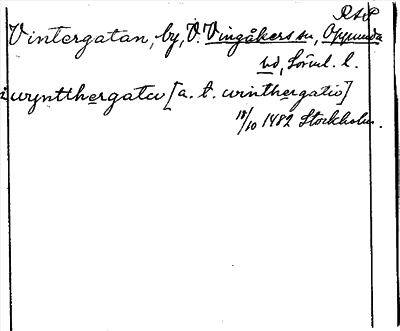 RAP
Vintergatan, by, V. Vingåkers sn, Oppunda
hd, Sörml. l.
i wyntthergata [a. t. winthergatio]
18/10 1482 Stockholm.